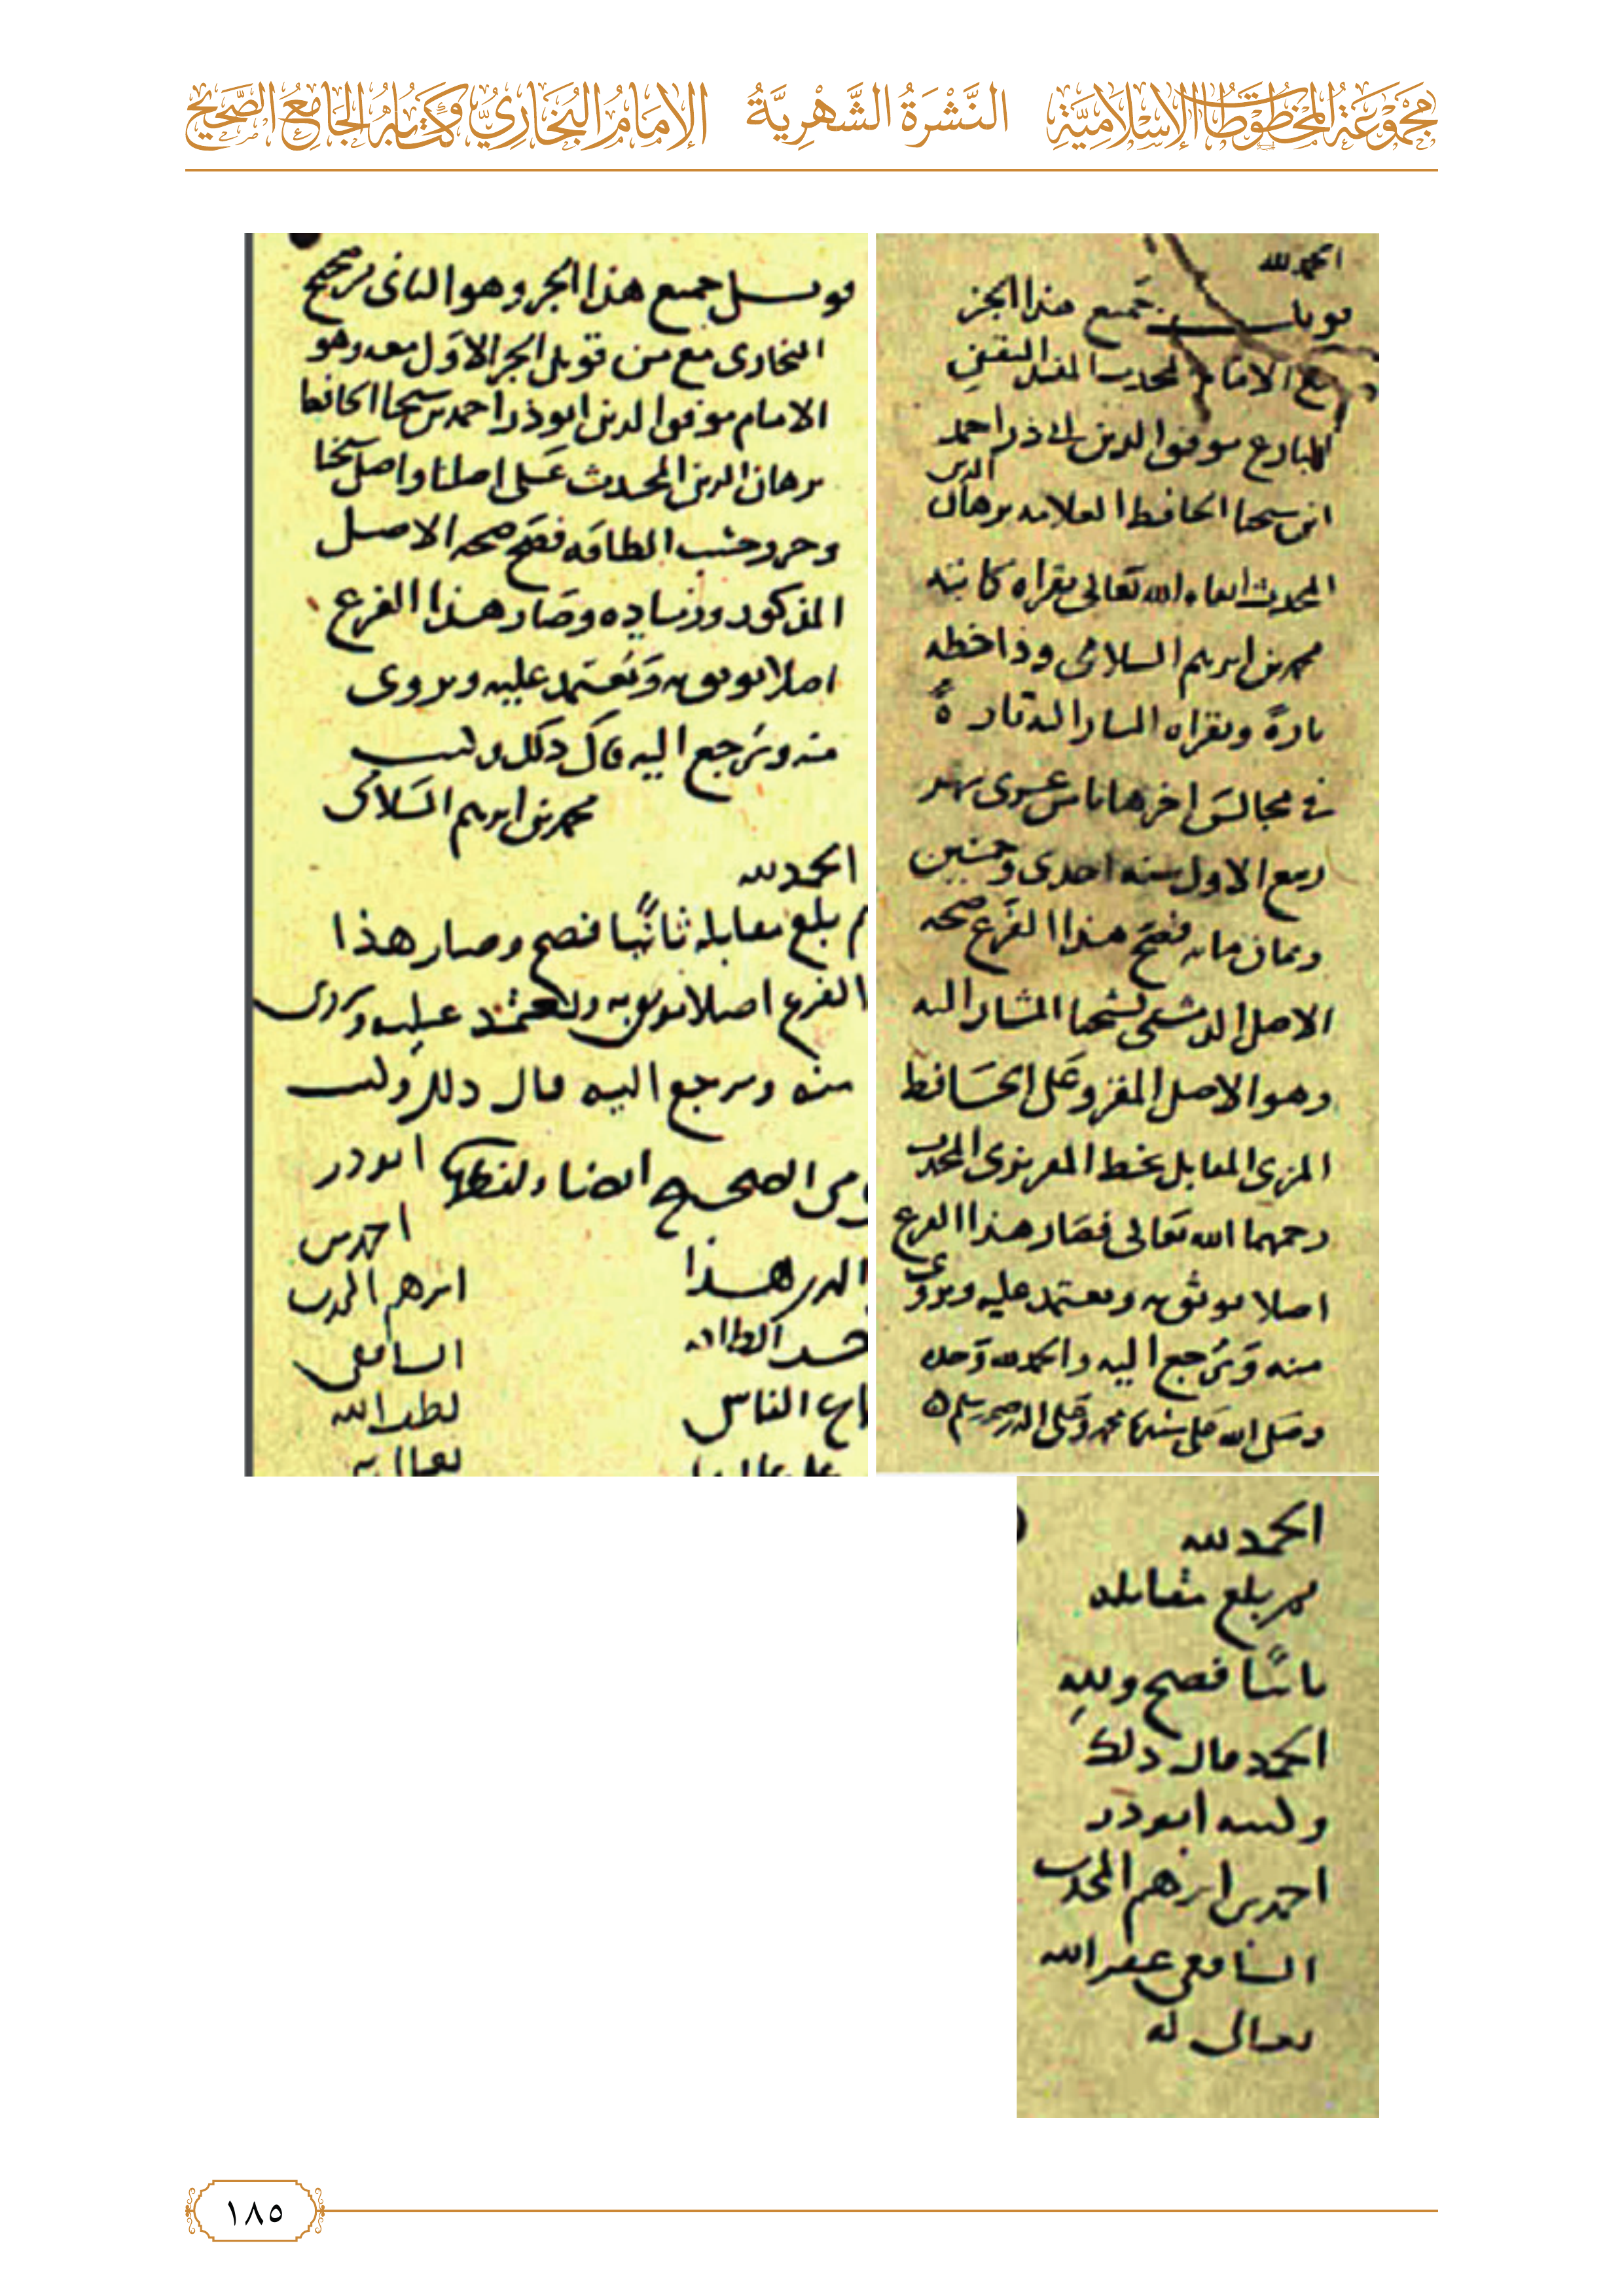 مَجْمُوعَةُ المَخْطُوطَاتِ الإِسْلَامِيَّةِ النَّشْرَةُ الشَّهْرِيَّةُ الإِمَامُ البُخَارِيُّ وَكِتَابُهُ الجَامِعُ الصَّحِيحُ
الحمد لله
قوبل جميع هذا الجزء
مع الامام المحدث المفنن
البارع موفق الدين ابي ذر احمد
ابن شيخنا الحافظ العلامه برهان الدين
المحدث ابقاه الله تعالى بقراه كاتبه
محمد بن ابرهيم السلامي وذا خطه
تارة وبقراه المشار اليه تارة
في مجالس اخرها شهر
ربيع الاول سنه احدى وخمسين
وثمان مايه فصح هذا الفرع صحه
الاصل الدمشقي لشيخنا المشار اليه
وهو الاصل المقرو على الحافظ
المزي المقابل بخط المحدث
رحمهما الله تعالى فصار هذا الفرع
اصلا يوثق به ويعتمد عليه ويروى
منه ويرجع اليه والحمد لله وحده
وصلى الله على سيدنا محمد وعلى اله وصحبه وسلم
قوبل جميع هذا الجزء وهو الثاني من صحيح
البخاري مع من قوبل الجزء الاول معه وهو
الامام موفق الدين ابو ذر احمد بن شيخنا الحافظ
برهان الدين المحدث على اصلنا واصل شيخنا
وحرر حسب الطاقه فصح صحه الاصل
المذكور وزياده وصار هذا الفرع
اصلا يوثق به ويعتمد عليه ويروى
منه ويرجع اليه قال ذلك وكتب
محمد بن ابرهيم السلامي
الحمد لله
ثم بلغ مقابله ثانيا فصح وصار هذا
الفرع اصلا يوثق به ويعتمد عليه ويروى
منه ويرجع اليه قال ذلك وكتب
ابو ذر
احمد بن
ابرهيم المحدث
الشافعي
لطف الله
تعالى به
الصحيح ايضا
هذا
الطاقه
الناس
الحمد لله
ثم بلغ مقابله
ثانيا فصح ولله
الحمد قال ذلك
وكتبه ابو ذر
احمد بن ابرهيم المحدث
الشافعي غفر الله
تعالى له
١٨٥